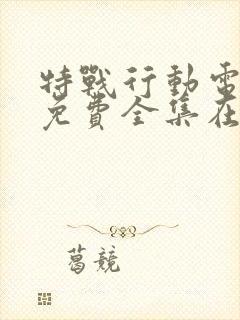 特戰行動電
免費全集在
葛競